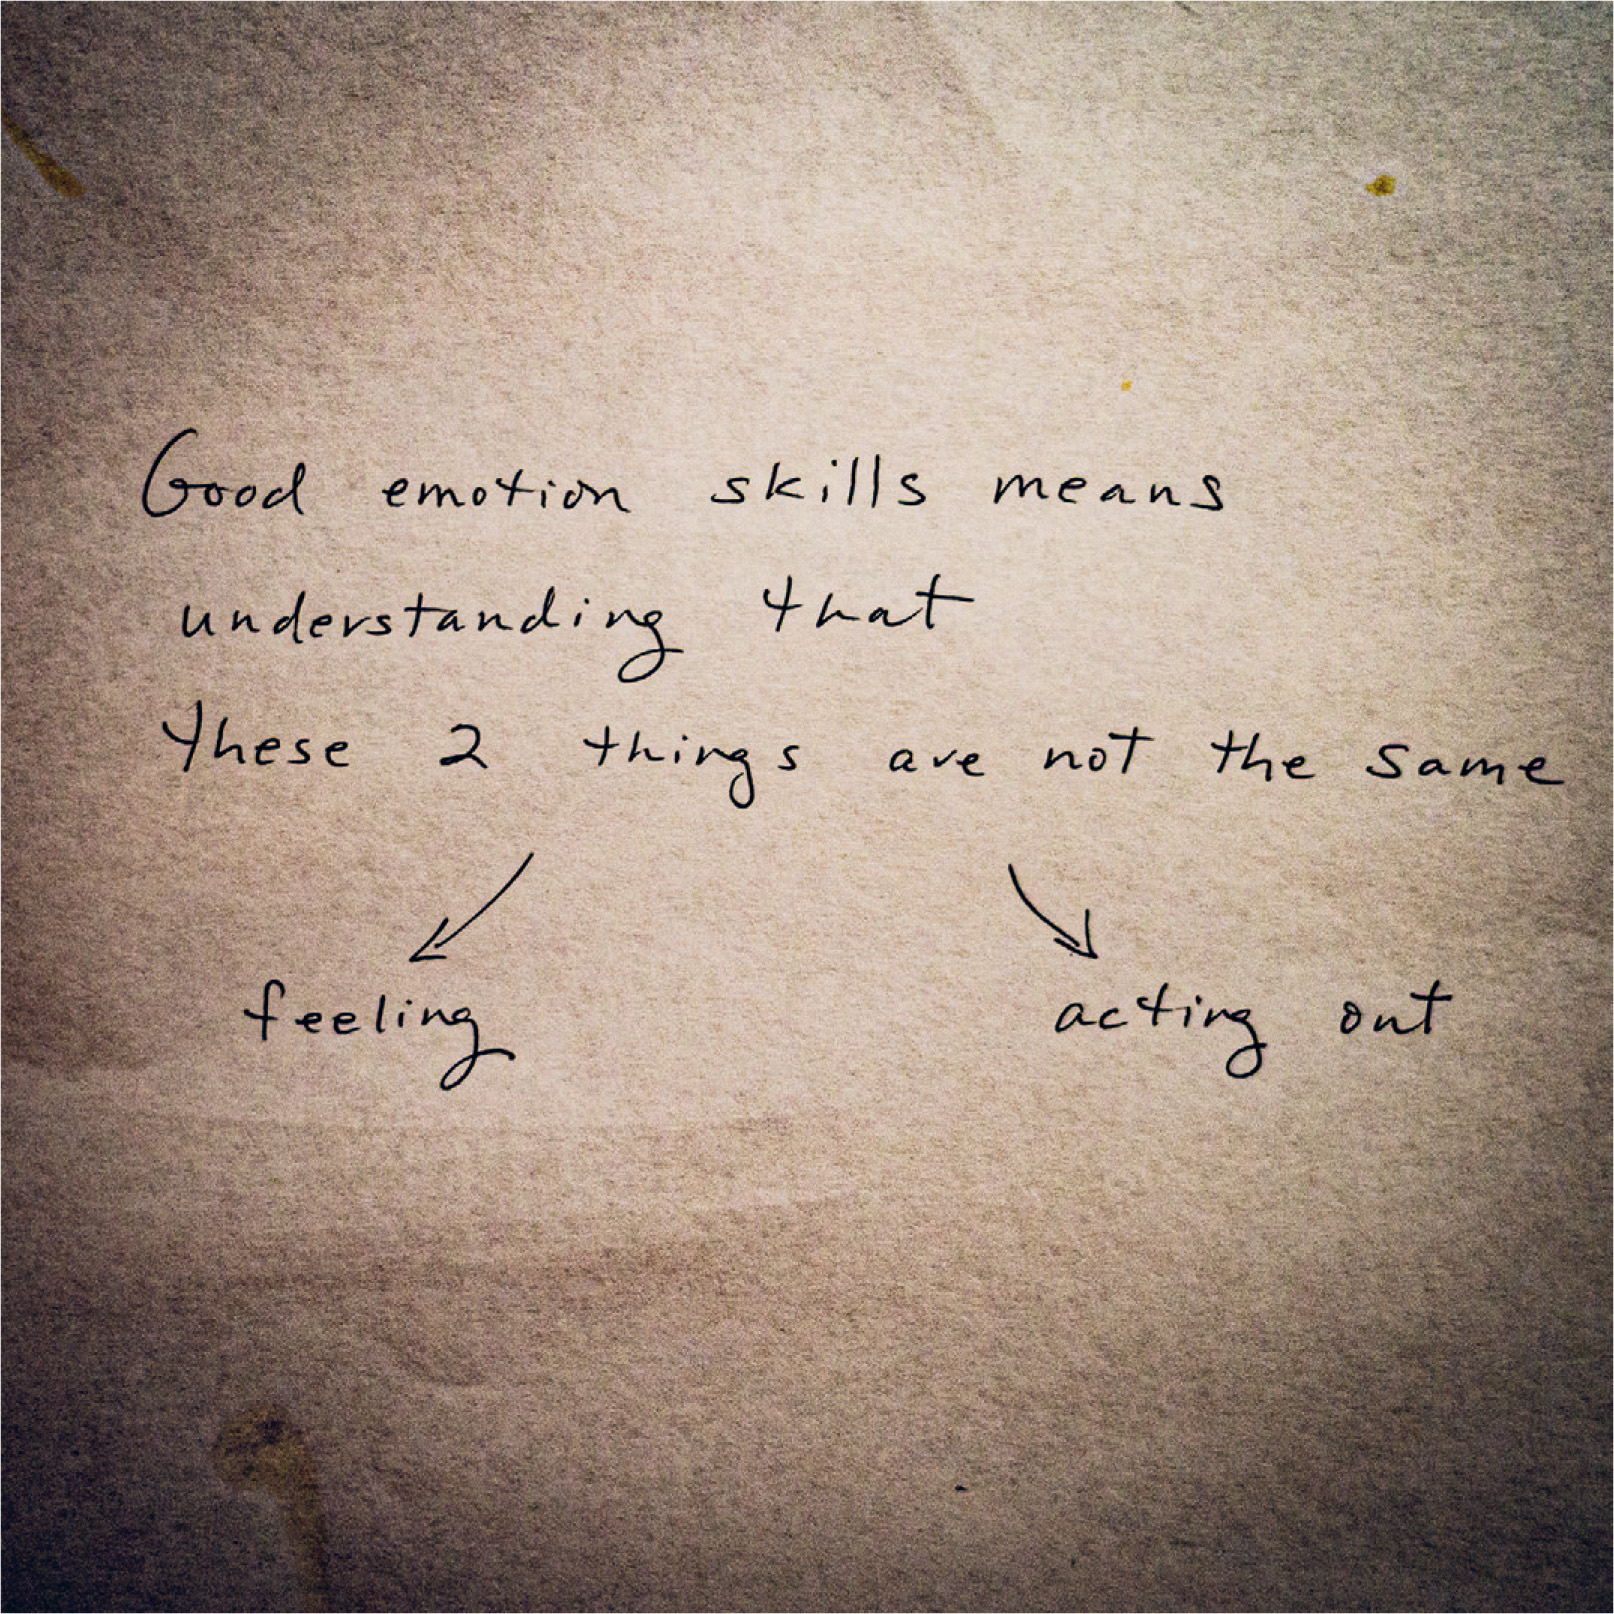 Good emotion skills means
understanding that
these 2 things are not the same
feeling acting out